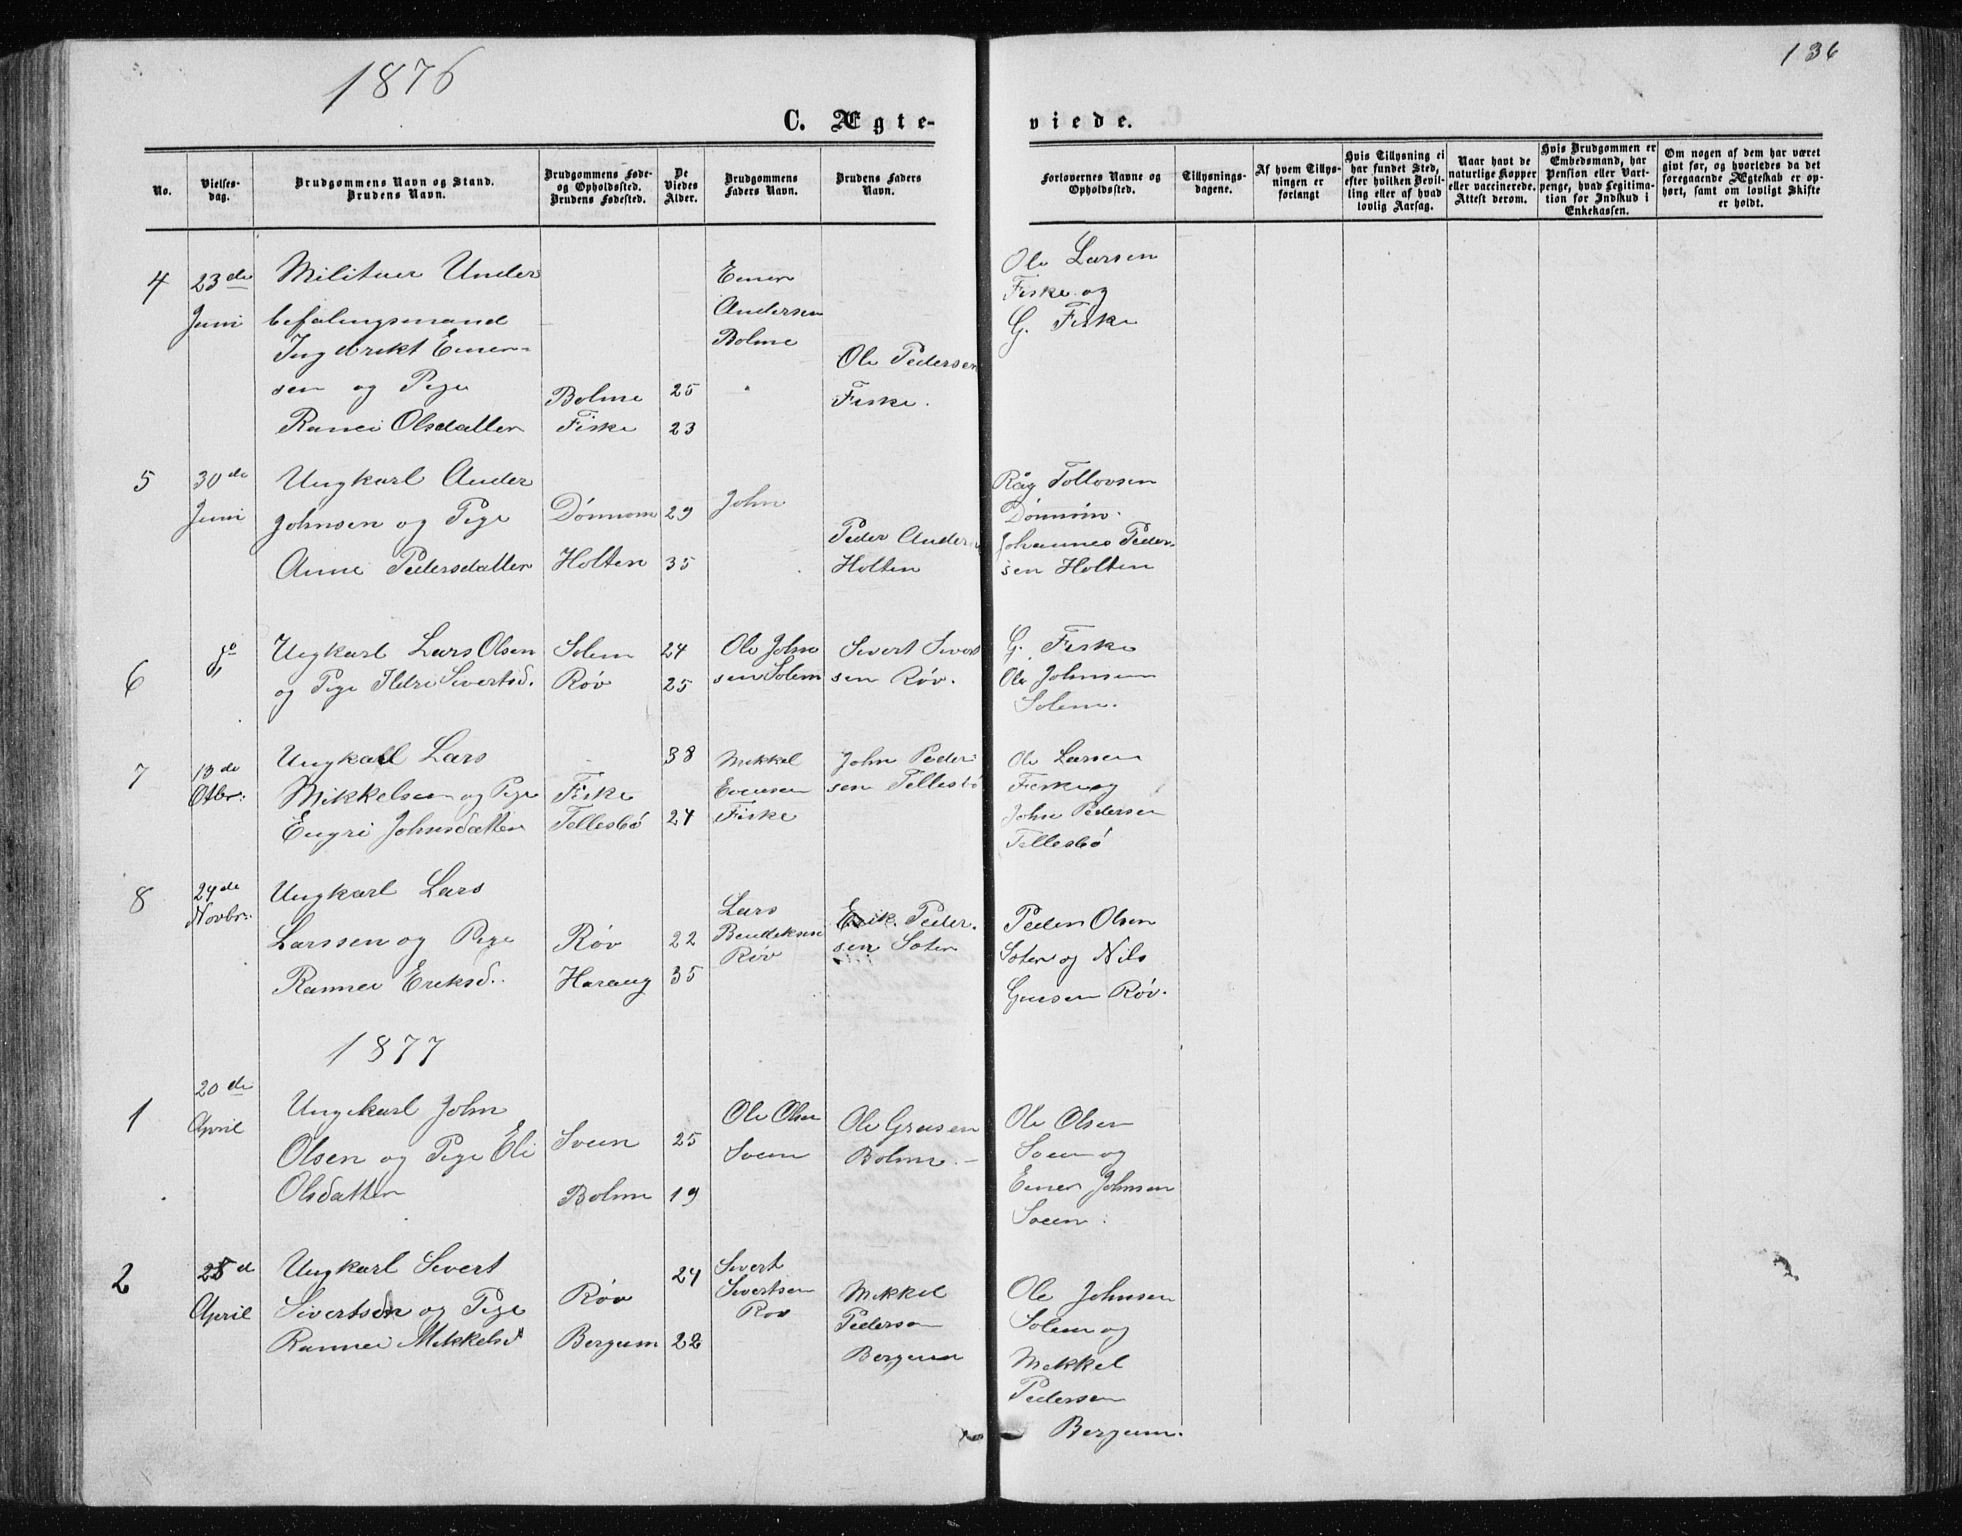 1876
136
C. Ægte-
viede.
No.
Vielses-
dag.
Brudgommens Navn og Stand.
Brudens Navn.
Brudgommens Føde-
og Opholdssted.
Brudens Fødested.
De
Viedes
Alder.
Brudgommens
Faders Navn.
Brudens Faders
Navn.
Forlovernes Navne og
Opholdssted.
Tillysnings-
dagene.
Af hvem Tillys-
ningen er
forlangt
Hvis Tillysning ei
har fundet Sted,
efter hvilken Bevil-
ling eller af hvad
lovlig Aarsag.
Naar havt de
naturlige Kopper
eller vaccinerede.
Attest derom.
Hvis Brudgommen er
Embedsmand, har
Pension eller Vart-
penge, hvad Legitima-
tion for Indskud i
Enkekassen.
Om nogen af dem har været
givt før, og hvorledes da det
foregaaende Ægteskab er op-
hørt, samt om lovligt Skifte
er holdt.
4
23de
Juni
Militær Under
befalingsmand
Ingebrikt Einer-
sen og Pige
Ranei Olsdatter
Bolme
Fiske
25
23
Einer
Andersen
Bolme
Ole Pedersen
Fiske.
Ole Larsen
Fiske og
G. Fiske
5
30de
Juni
Ungkarl Ander
Johnsen og Pige
Anne Pedersdatter
Dønnem
Holten
29
35
John
Peder Ander
Holten
Råg Tollovsen
Dønnem.
Johannes Peder-
sen Holten
6
Ungkarl Lars Olsen
og Pige Ildri Sivertsd.
Solem
Røv
24
25
Ole John
sen Solem
Sivert Siverts
sen Røv.
G. Fiske
Ole Johnsen
Solem.
7
13de
Otbr:
Ungkarl Lars
Mikkelsen og Pige
Engri Johnsdatter
Fiske
Tellesbø
38
24
Mikkel
Evensen
Fiske
John Peder-
sen Tellesbø
Ole Larsen
Fiske og
John Pedersen
Tellesbø
8
24de
Novbr:
Ungkarl Lars
Larssen og Pige
Rannei Eriksd.
Røv
Harang
22
35
Lars
Bendiksen
Røv
Erik Peder-
sen Søter
Peder Olsen
Søter og Nils
Røv.
1877
1
20de
April
Ungekarl John
Olsen og Pige Eli
Olsdatter
Sveen
Bolme
25
19
Ole Olsen
Sveen
Ole Grusen
Bolme.-
Ole Olsen
Sveen og
Einer Johnsen
Sveen.
2
25d
April
Ungkarl Sivert
Sivertsen og Pige
Rannei Mikkelsd
Røv
Bergum
24
22
Sivert
Sivertsen
Røv
Mikkel
Pedersen
Bergum
Ole Johnsen
Solem og
Mikkel
Pedersen
Bergum.